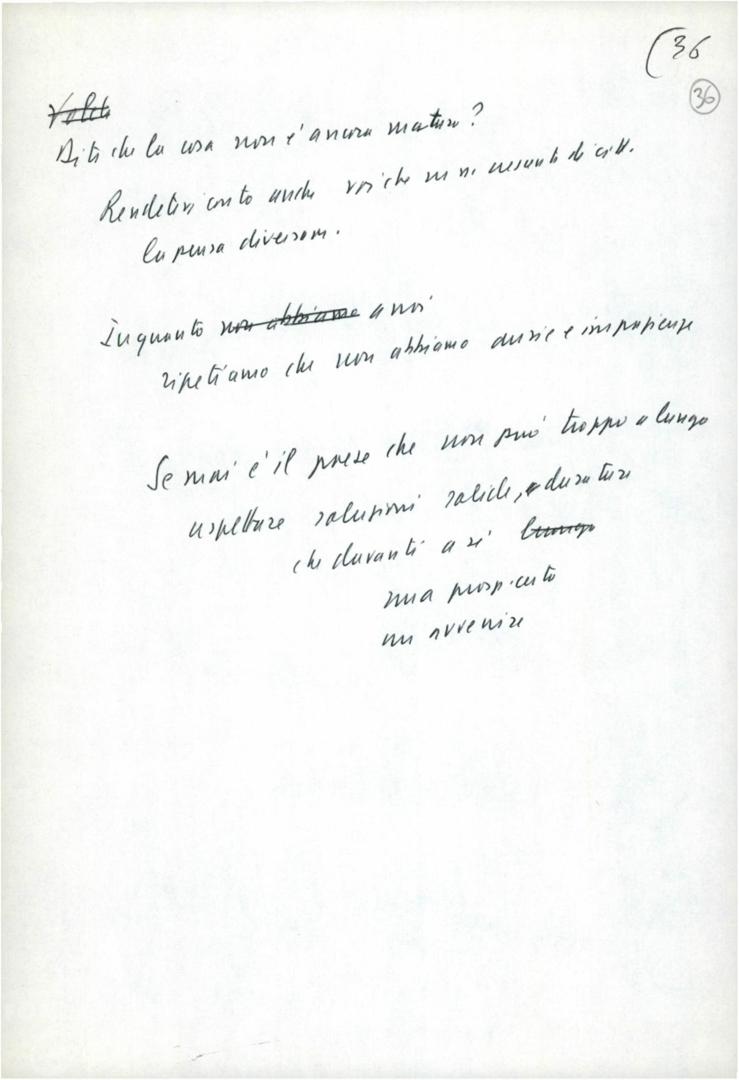 (36
36
Volete
Dite che la cosa non é ancora matura?
Rendetevi conto anche voi che un n. crescente di citt.
la pensa diversam.
In quanto non abbiamo a noi
ripetiamo che non abbiamo ansie e impazienze
Se mai é il paese che non può troppo a lungo
aspettare soluzioni solide, e durature
che davanti a sé lungo
una prosp. certa
un avvenire